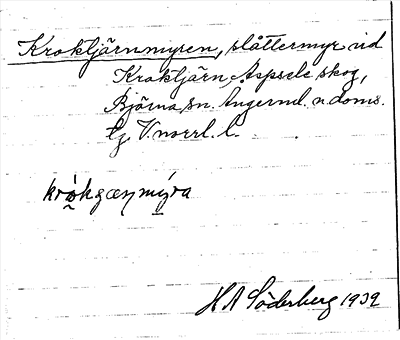 Kroktjärnmyren, slåttermyr vid
Kroktjärn, Aspsele skog,
Björna sn. Ångerml. n. doms.
lg V.norrl. l.
krok
H A Söderberg 1939